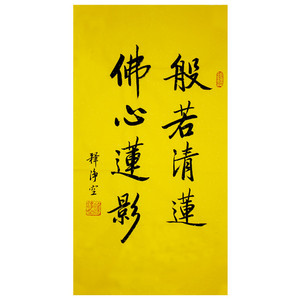 般若清蓮
佛心蓮影
釋淨空